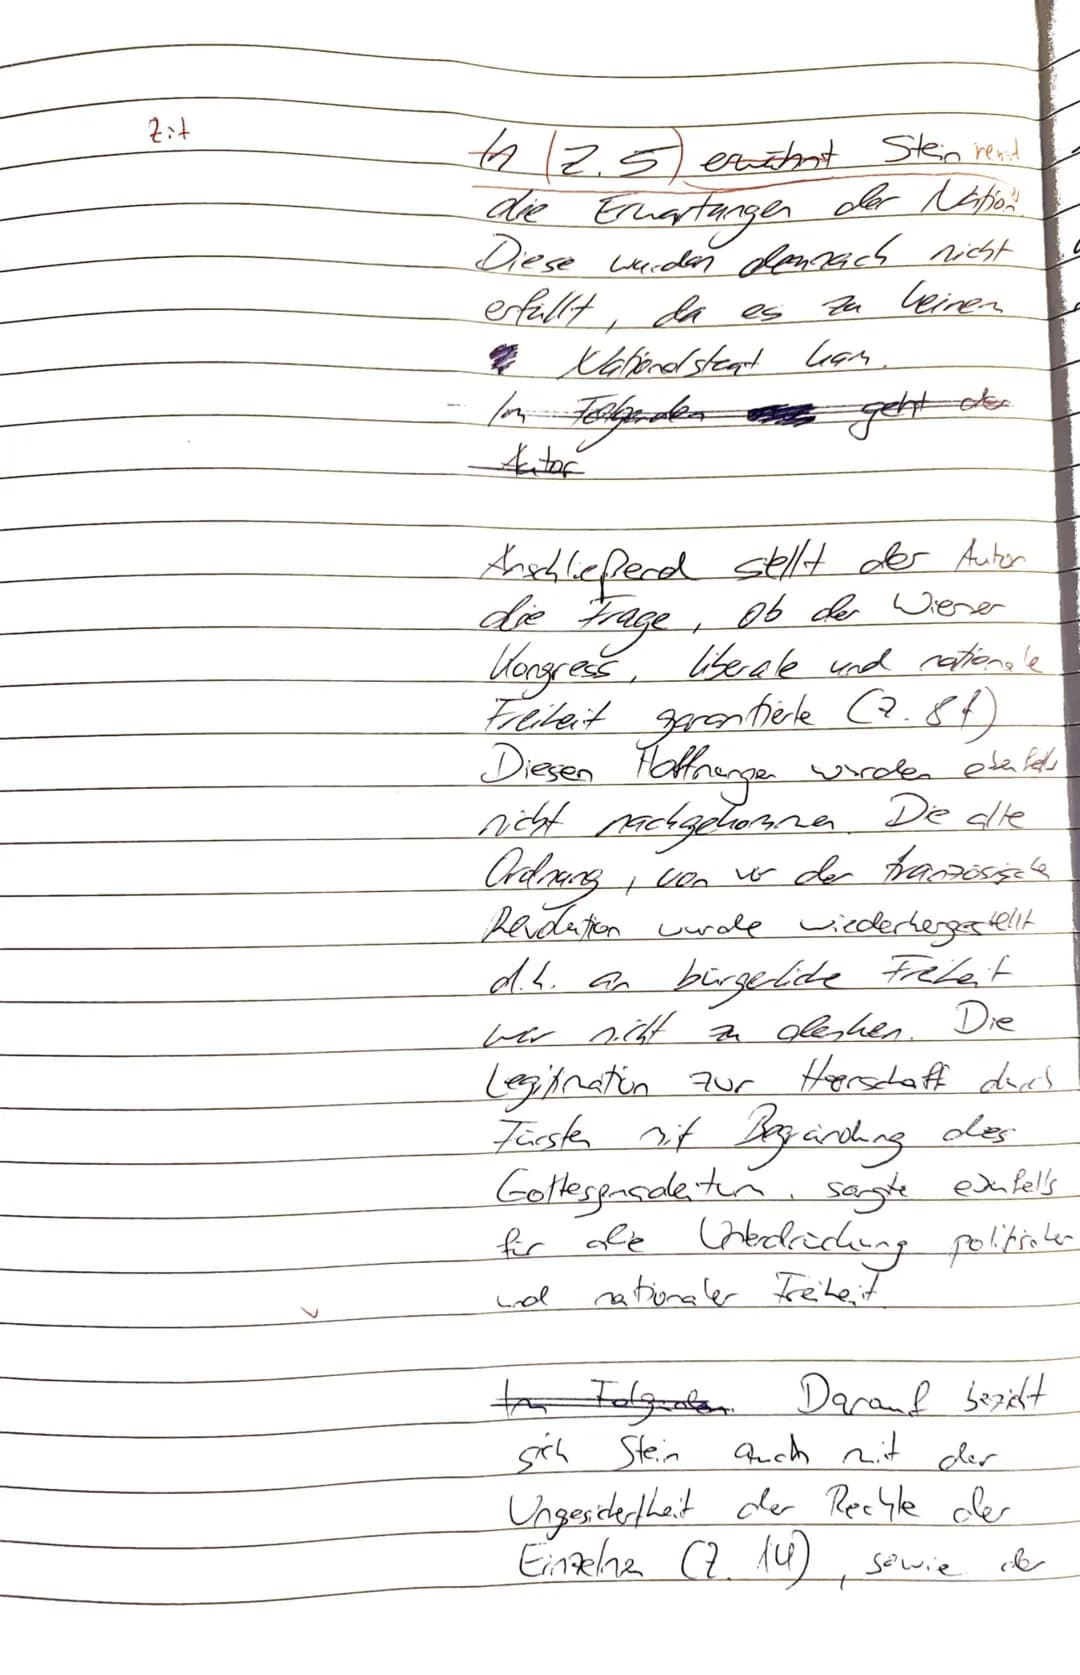 Zit
In (Z. 5) erwähnt Stein nennt
die Erwartungen der Nation.
Diese wurden demnach nicht
erfüllt, da es zu keinen
Nationalstaat kam.
Im Folgenden geht der
Autor
Anschließend stellt der Autor
die Frage, ob der Wiener
Kongress, liberale und nationale
Freiheit garantierte (Z. 8f)
Diesen Hoffnungen wurden ebenfalls
nicht nachgekommen. Die alte
Ordnung, von vor der französische
Revolution wurde wiederhergestellt
d.h. an bürgerliche Freiheit
war nicht zu denken. Die
Legitimation zur Herrschaft durch
Fürsten mit Begründung des
Gottesgnadentum, sorgte ebenfalls
für die Unterdrückung politischer
und nationaler Freiheit
Im Folgenden Darauf bezieht
sich Stein auch mit der
Ungesichertheit der Rechte der
Einzelne (Z. 14), sowie der